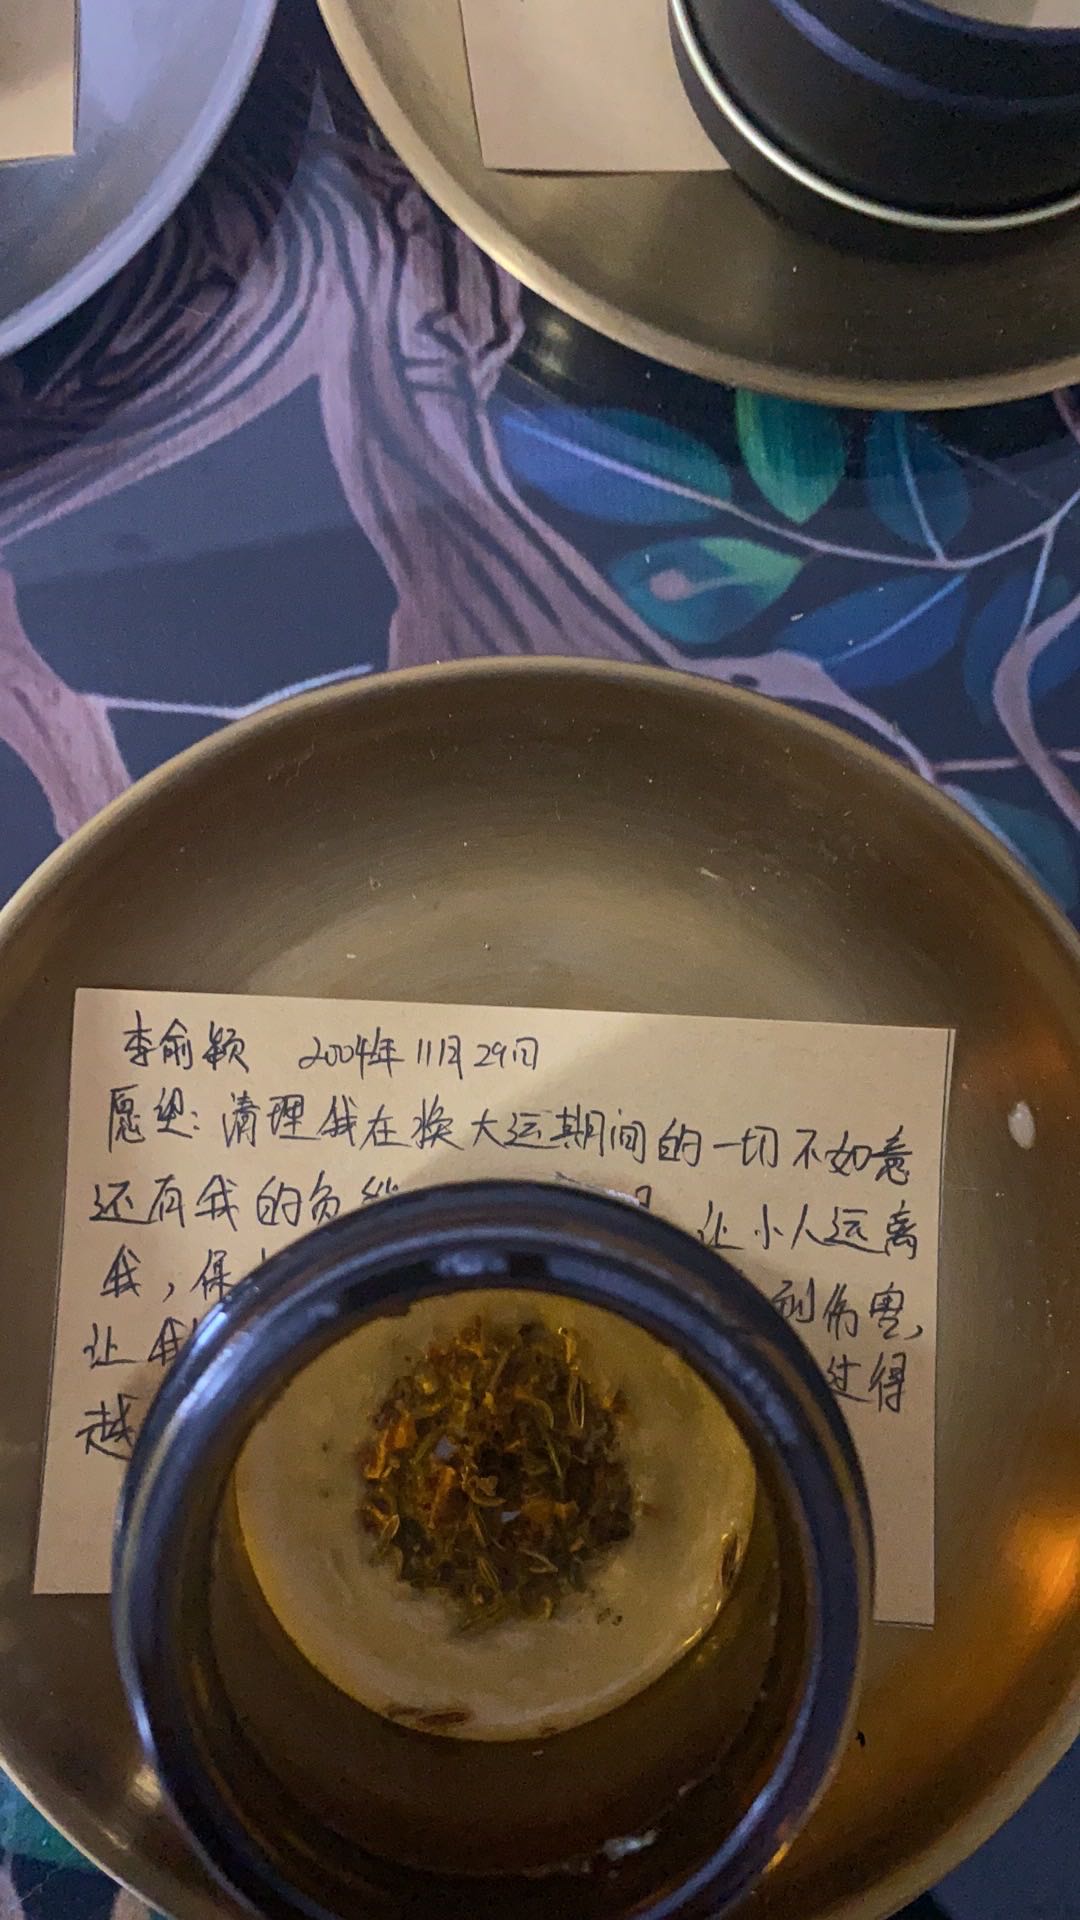 李俞颖 2004年11月29日
愿望：清理我在换大运期间的一切不如意
还有我的负 让小人远离
我，保 到伤害，
让我 过得
越